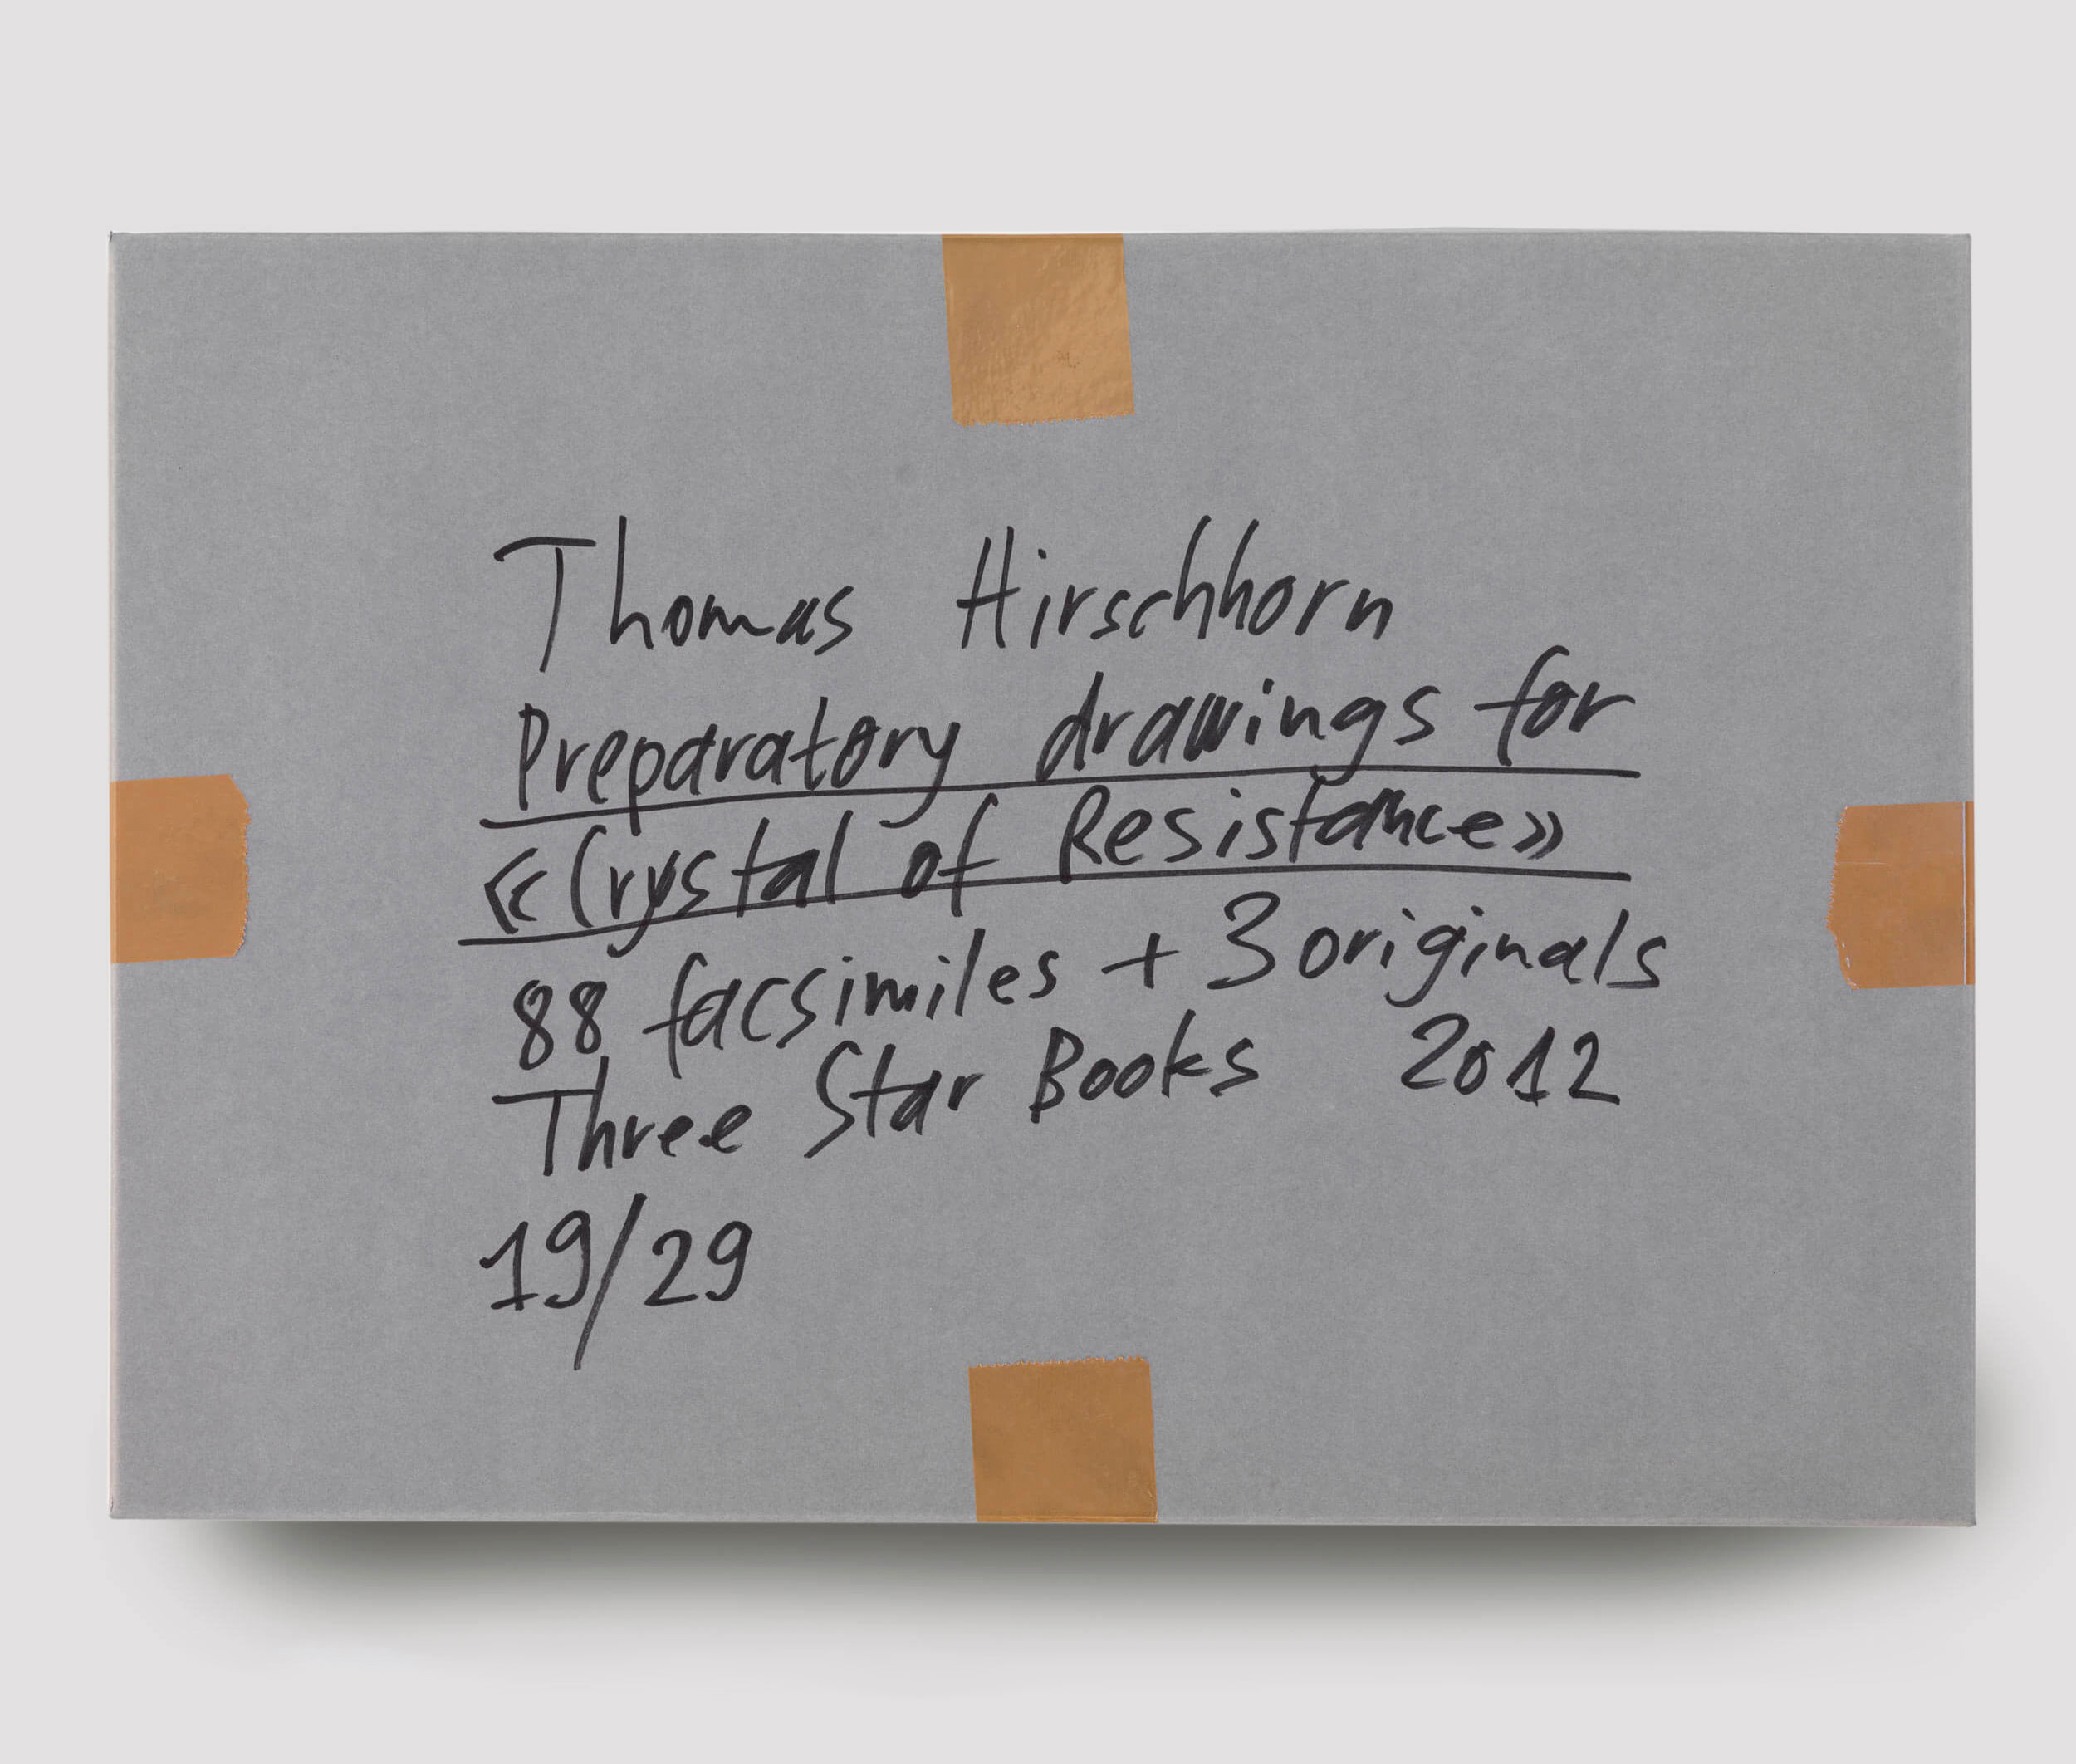 Thomas Hirschhorn
Preparatory drawings for
«Crystal of Resistance»
88 facsimiles + 3 originals
Three Star Books 2012
19/29